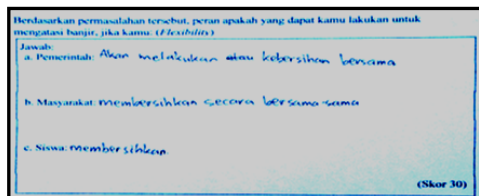 Berdasarkan permasalahan tersebut, peran apakah yang dapat kamu lakukan untuk
mengatasi banjir, jika kamu: (Flexibility)
Jawab:
a. Pemerintah: Akan melakukan atau kebersihan bersama
b. Masyarakat: membersihkan secara bersama-sama
c. Siswa: membersihkan
(Skor 30)